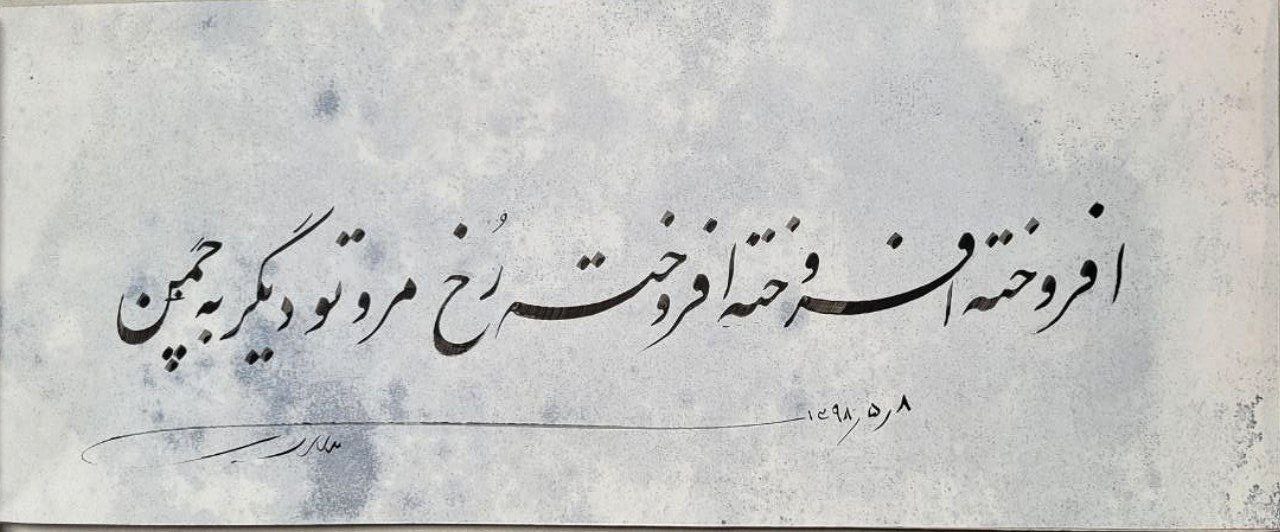 افروخته افروخته افروخته رُخ مرو تو دیگر به چَمَن
۱۳۹۸ر۵ر۸